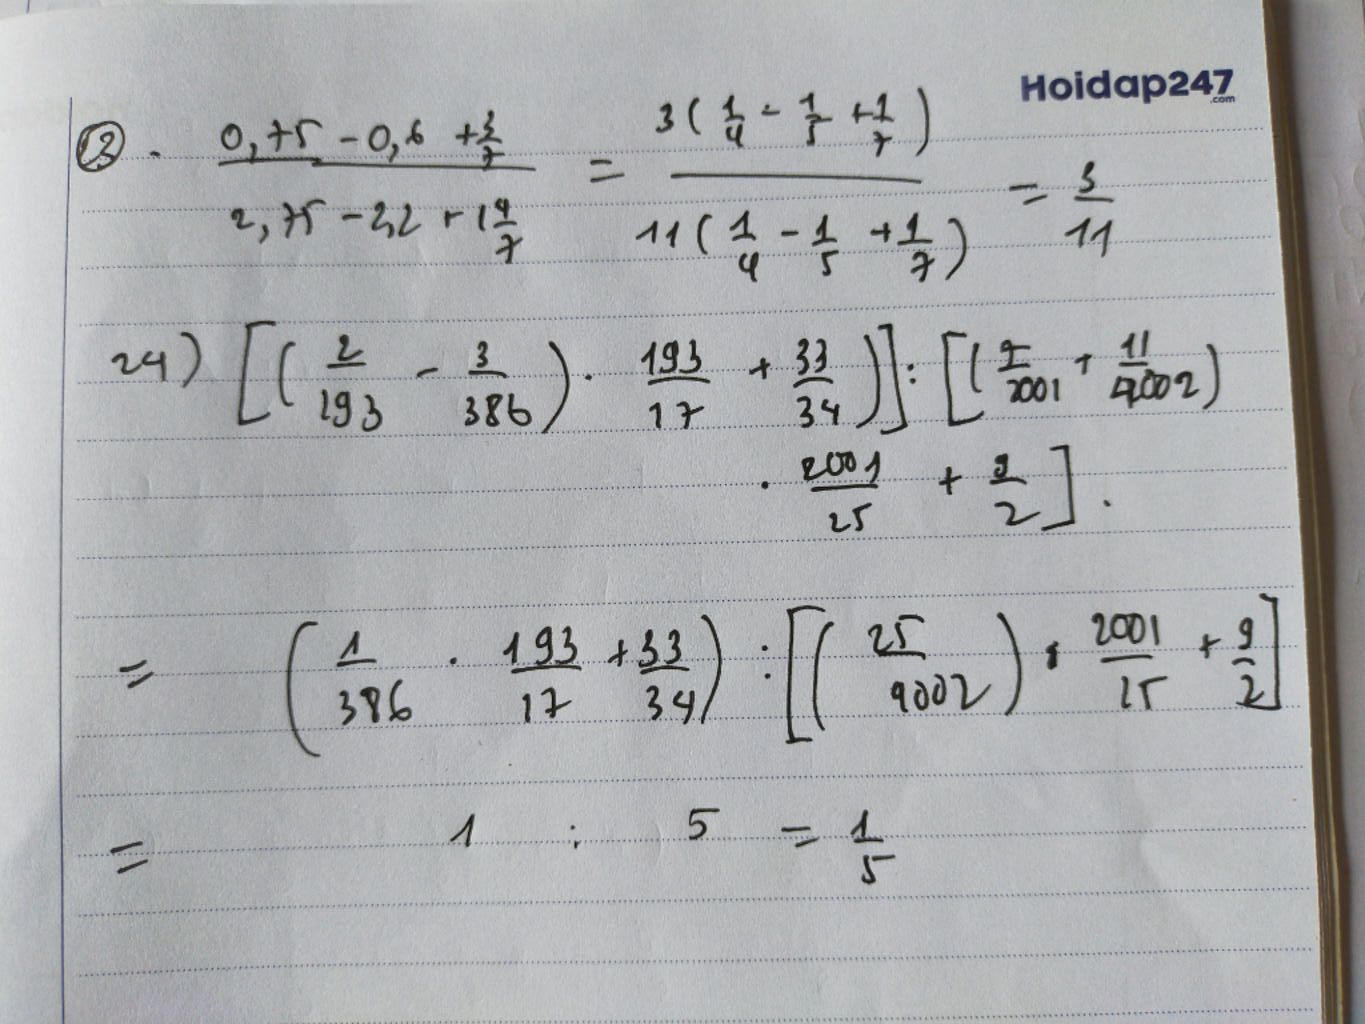 Hoidap247
.com
(2). (0,75 - 0,6 + 3/7) / (2,75 - 2,2 + 1 4/7) = 3(1/4 - 1/5 + 1/7) / 11(1/4 - 1/5 + 1/7) = 3/11
24) [(2/193 - 3/386) . 193/17 + 33/34)] : [(7/2001 + 11/4002)
. 2001/25 + 9/2].
= (1/386 . 193/17 + 33/34) : [(25/4002) . 2001/25 + 9/2]
= 1 : 5 = 1/5